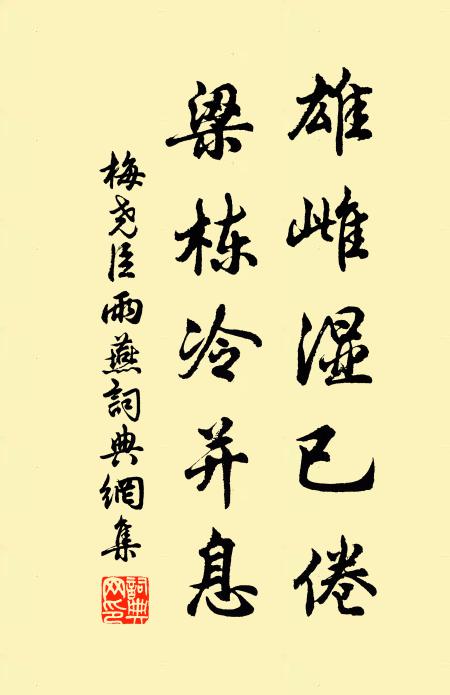 雄雌湿已倦
梁栋冷并息
梅尧臣雨燕詞典網集
詞典網印